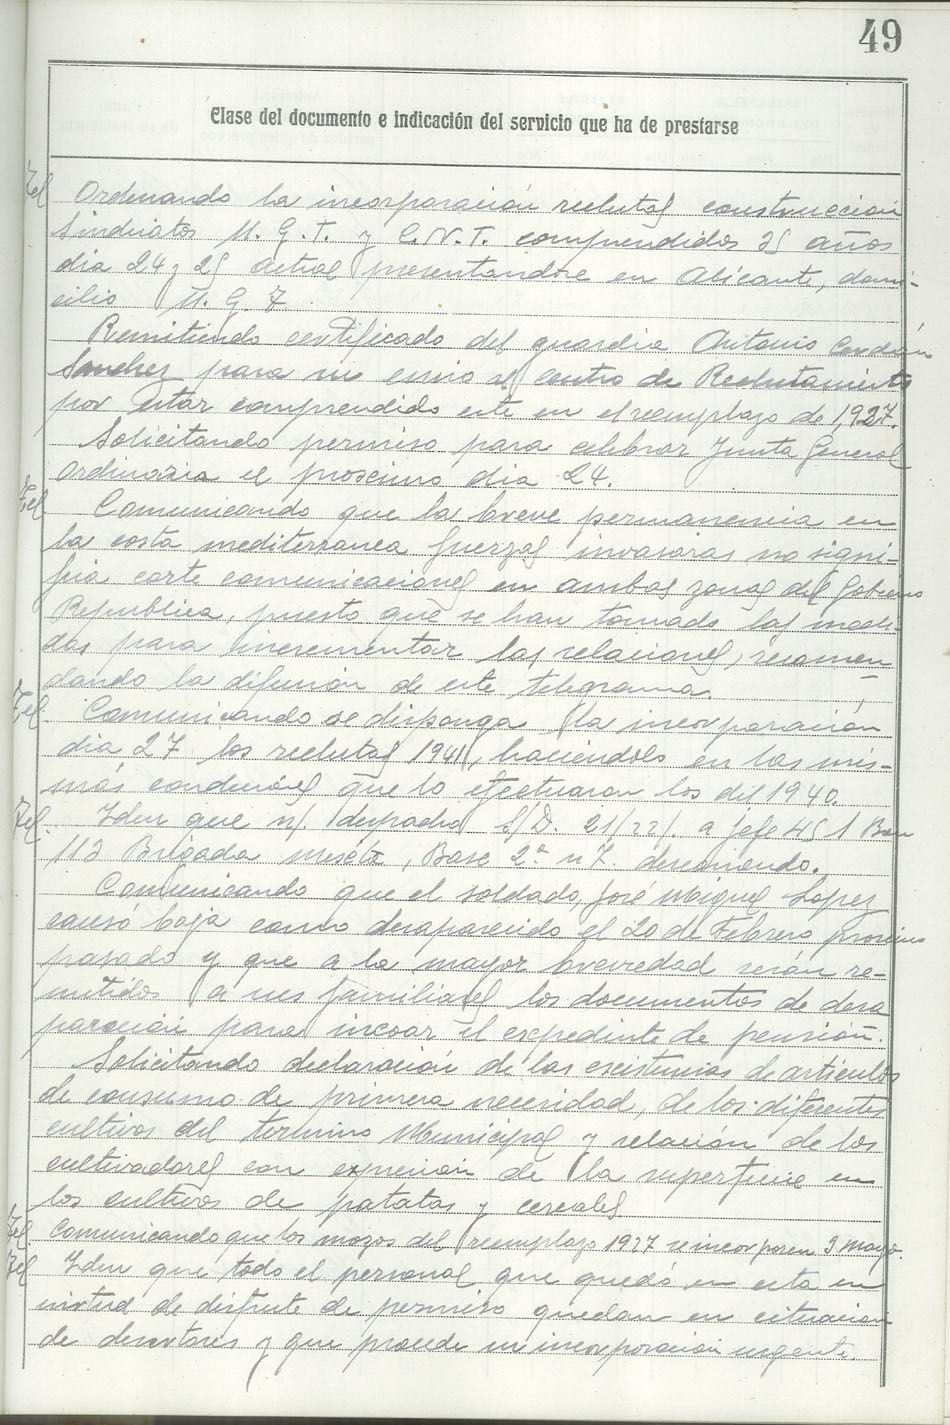 49
Clase del documento e indicación del servicio que ha de prestarse
Tel Ordenando la incorporación reclutas construccion
Sindicatos U. G. T. y C.N.T. comprendidos 35 años
dia 24 y 25 actual presentandose en Alicante, domi-
cilio U. G. T
Remitiendo certificado del guardia Antonio Cerdán
Sanchez para su envio al centro de Reclutamiento
por estar comprendido este en el reemplazo de 1,927.
Solicitando permiso para celebrar Junta General
Ordinaria el proscimo dia 24.
Tel Comunicando que la breve permanencia en
la costa mediterranea fuerzas invasoras no signi-
fica corte comunicaciones en ambas zonas del Gobierno
Republica, puesto que se han tomado las medi-
das para incrementar las relaciones, recomen
dando la difusión de este telegrama.
Tel. Comunicando se disponga la incorporación
dia 27 los reclutas 1941, haciéndolo en las mis-
mas condiciones que lo efectuaron los del 1940.
Tel. Idem que n/. despacho S/D. 21/22/. a jefe 451 Bon
113 Brigada mixta, Base 2ª n 7. descansando.
Comunicando que el soldado, José Miguel Lopez
causó baja como desaparecido el 20 de Febrero proscimo
pasado y que a la mayor brevedad serán re-
mitidos a sus familiares los documentos de desa
parición para incoar el expediente de pensión.
Solicitando declaración de las escistencias de articulos
de consumo de primera necesidad, de los diferentes
cultivos del termino Municipal y relación de los
cultivadores con expresion de la superficie en
los cultivos de patatas y cereales
Tel Comunicando que los mozos del reemplazo 1927 se incorporen 3 mayo.
Tel Idem que todo el personal que quedó en esta en
virtud de disfrute de permiso quedan en situacion
de desertores y que procede su incorporación urgente.